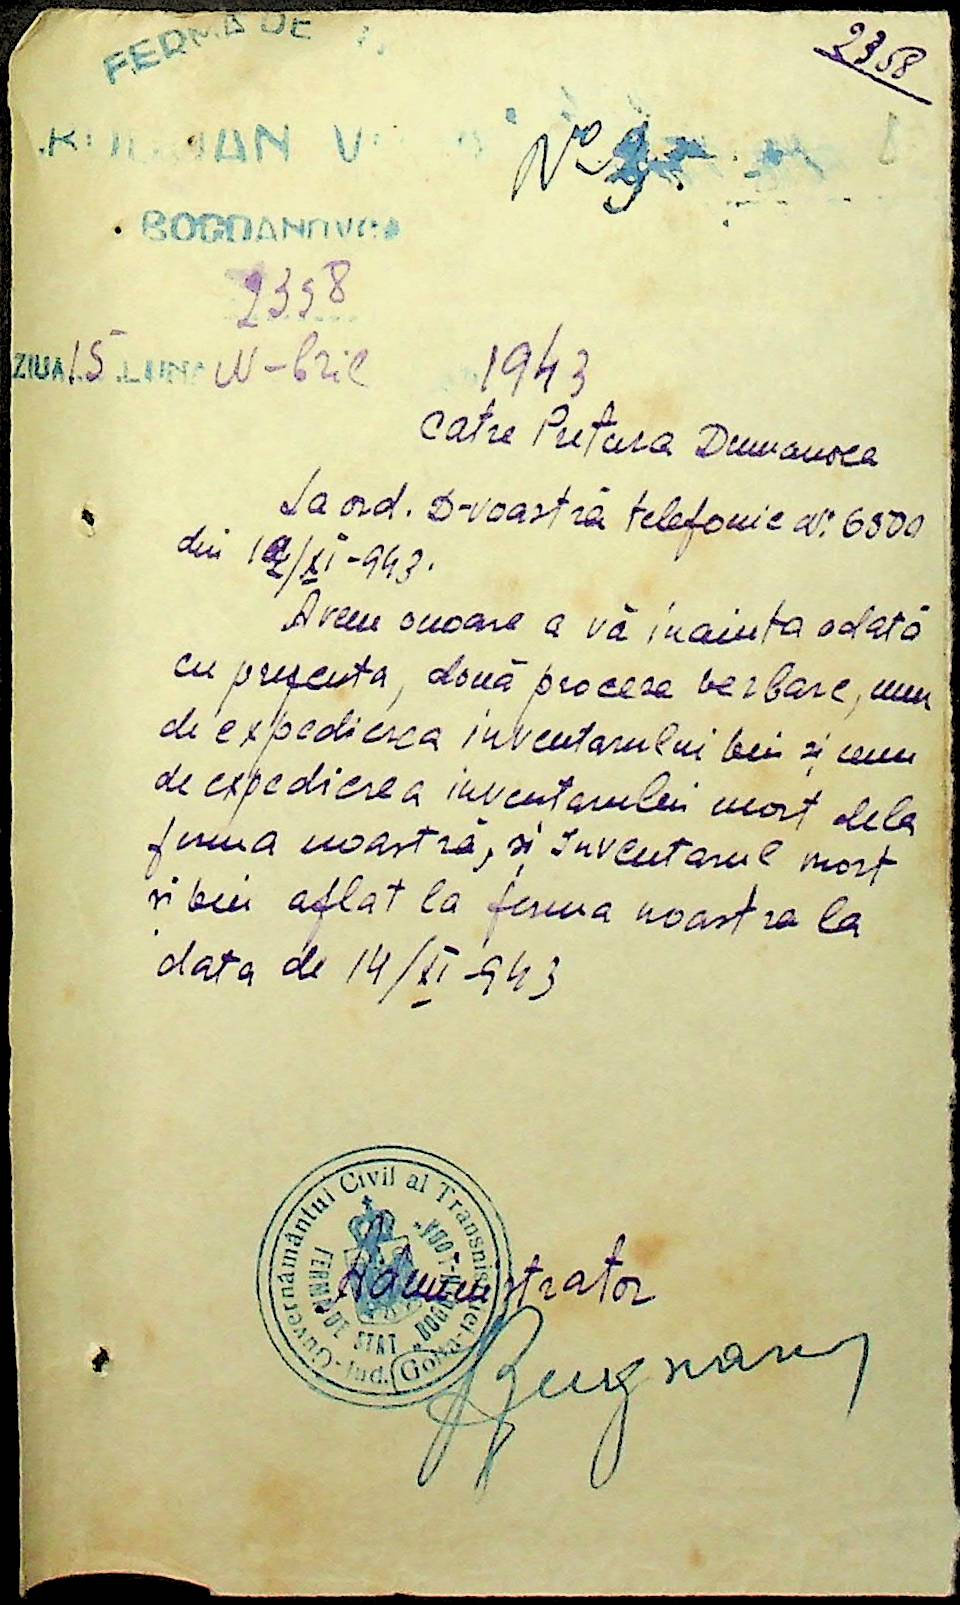 2358
FERMA DE
No 9
BOGDANOVCA
2358
ZIUA 15 LUNA N-brie 1943
Catre Pretura Dumanoca
La ord. D-voastră telefonic Nr. 6500
din 12/XI-943.
Avem onoare a vă inainta odată
cu prezenta, două procese verbare, unu
de expedierea inventarului biu și unu
de expedierea inventarului mort dela
ferma noastră, și Inventarul mort
și biu aflat la ferma noastra la
data de 14/XI-943
Guvernământul Civil al Transnistriei
Jud. Golta
FERMA DE STAT
Administrator